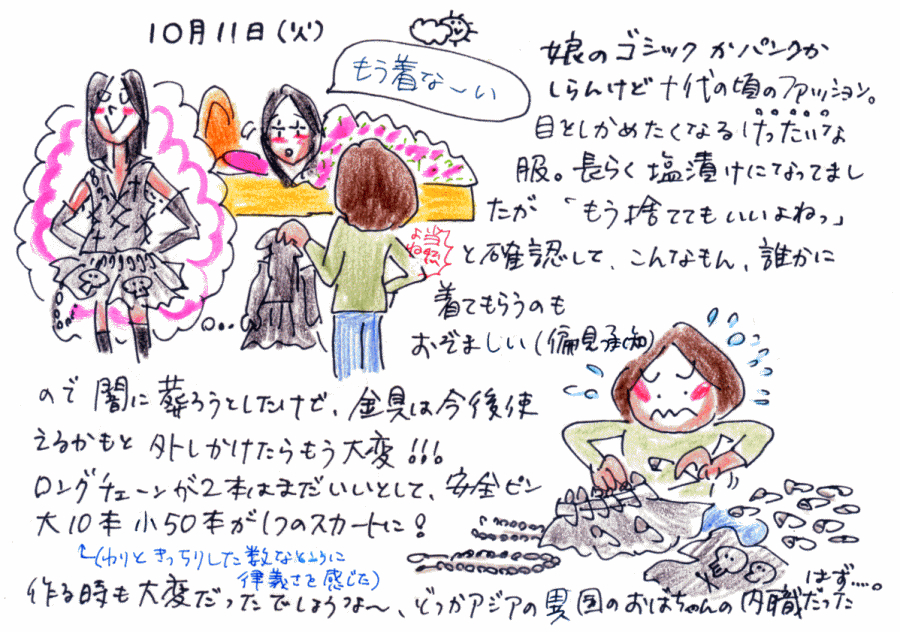 10月11日(火)
もう着な～い
当然よね
娘のゴシックかパンクか
しらんけど十代の頃のファッション。
目としかめたくなるけったいな
服。長らく塩漬けになってまし
たが「もう捨ててもいいよねっ」
と確認して、こんなもん、誰かに
着てもらうのも
おぞましい(偏見承知)
ので闇に葬ろうとしたけど、金具は今後使
えるかもと外しかけたらもう大変!!!
ロングチェーンが2本はまだいいとして、安全ピン
大10本小50本が1つのスカートに!
(わりときっちりした数なところに
律義さを感じた)
作る時も大変だったでしょうな～、どっかアジアの異国のおばちゃんの内職だった
はず…。
YEO